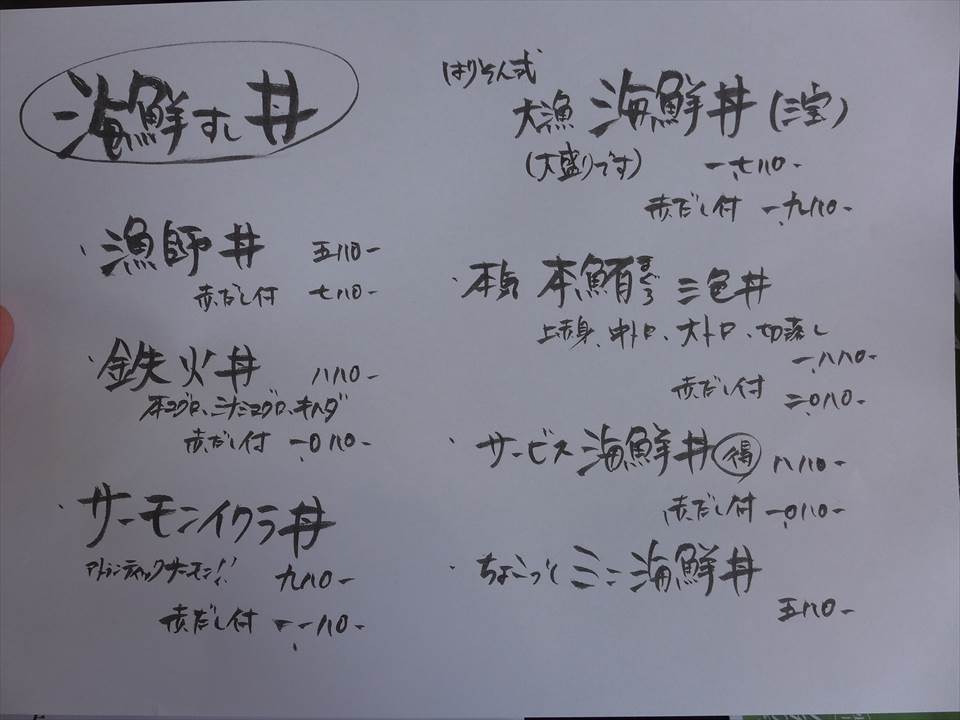 海鮮すし丼
・漁師丼 五八〇ー
赤だし付 七八〇ー
・鉄火丼 八八〇ー
本マグロ、ミナミマグロ、キハダ
赤だし付 一、〇八〇ー
・サーモンイクラ丼
アトランティックサーモン!!
九八〇ー
赤だし付 一、一八〇ー
はりそん式
大漁 海鮮丼(三宝)
(大盛りです) 一、七八〇ー
赤だし付 一、九八〇ー
・本気 本鮪まぐろ 三色丼
上赤身、中トロ、大トロ、切落し
一、八八〇ー
赤だし付 二、〇八〇ー
・サービス海鮮丼 得 八八〇ー
赤だし付 一、〇八〇ー
・ちょこっと ミニ海鮮丼
五八〇ー